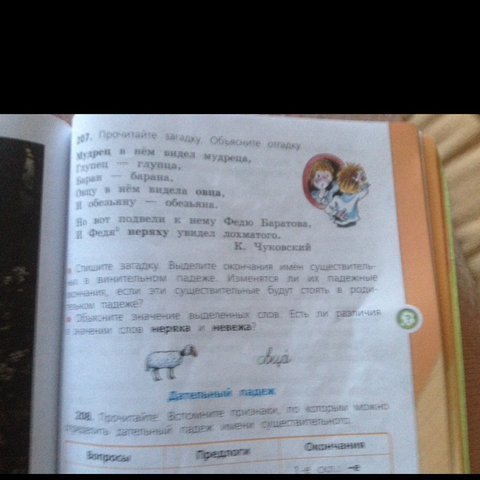 207. Прочитайте загадку. Объясните отгадку.
Мудрец в нём видел мудреца,
Глупец — глупца,
Баран — барана,
Овцу в нём видела овца,
И обезьяну — обезьяна.
Но вот подвели к нему Федю Баратова,
И Федя³ неряху увидел лохматого.
К. Чуковский
Спишите загадку. Выделите окончания имён существитель-
ных в винительном падеже. Изменятся ли их падежные
окончания, если эти существительные будут стоять в роди-
тельном падеже?
Объясните значение выделенных слов. Есть ли различия
в значении слов неряха и невежа?
овца́
Дательный падеж
208. Прочитайте. Вспомните признаки, по которым можно
определить дательный падеж имени существительного.
Вопросы Предлоги Окончания
1-е скл.: -е